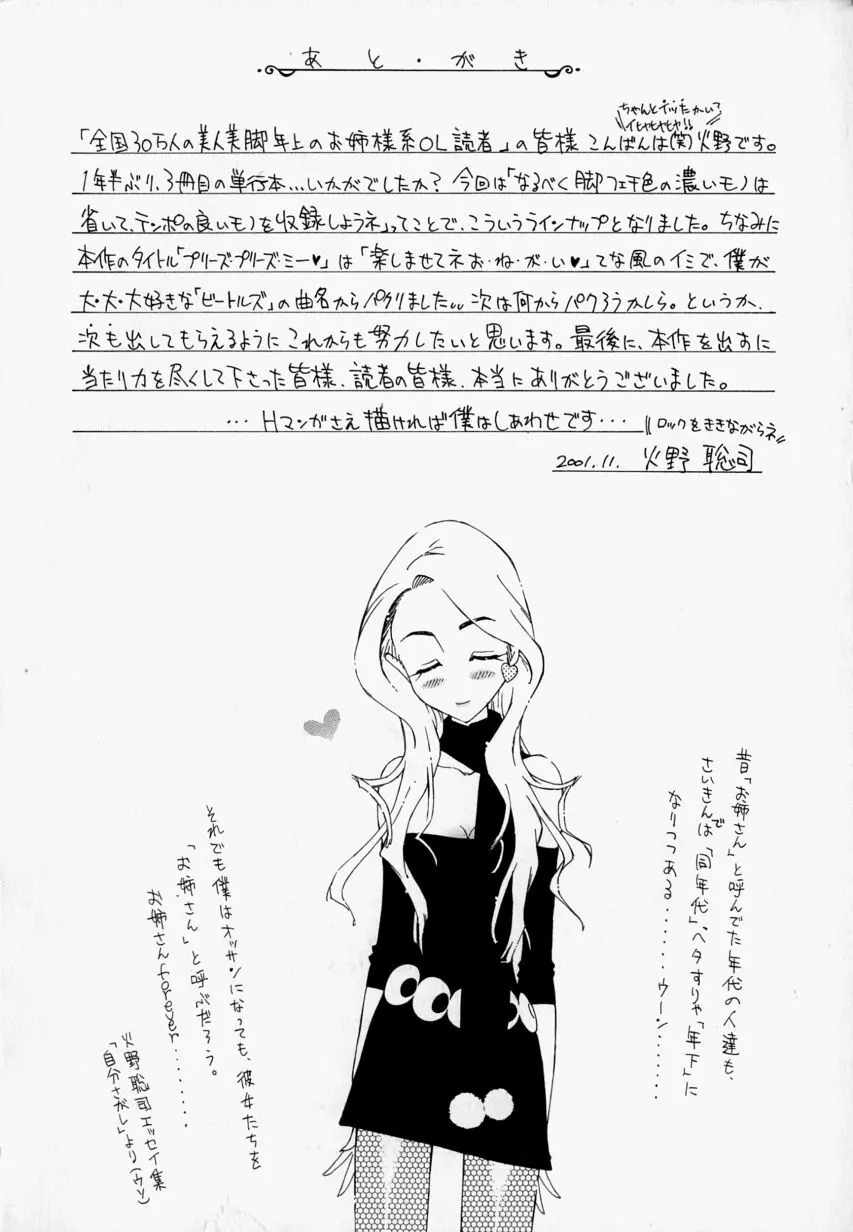 あと・がき
ちゃんとボッたかい？
イヒヒヒヒヒ!!
「全国30万人の美人美脚年上のお姉様系OL読者」の皆様 こんばんは(笑)火野です。
1年半ぶり、3冊目の単行本…いかがでしたか？ 今回は「なるべく脚フェチ色の濃いモノは
省いて、テンポの良いモノを収録しようネ」ってことで、こういうラインナップとなりました。ちなみに
本作のタイトル「プリーズ・プリーズ・ミー♥」は「楽しませてネお・ね・が・い♥」てな風のイミで、僕が
大・大・大好きな「ビートルズ」の曲名からパクりました〃 次は何からパクろうかしら。というか、
次も出してもらえるように これからも努力したいと思います。最後に、本作を出すに
当たり力を尽くして下さった皆様、読者の皆様、本当にありがとうございました。
…Hマンガさえ描ければ僕はしあわせです…
〃ロックをききながらネ〃
2001.11. 火野 聡司
昔「お姉さん」と呼んでた年代の人達も、
さいきんでは「同年代」、ヘタすりゃ「年下」に
なりつつある.......ウーン.......
それでも僕はオッサンになっても、彼女たちを
「お姉さん」と呼ぶだろう。
お姉さんforever........
火野聡司エッセイ集
「自分さがし」より(ウソ)